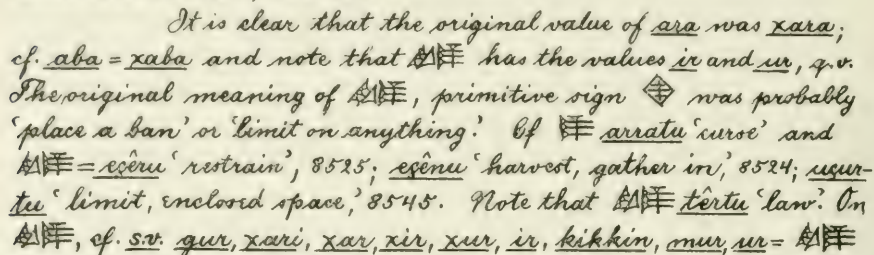 It is clear that the original value of ara was xara;
cf. aba = xaba and note that 𒄯 has the values ir and ur, q.v.
The original meaning of 𒄯, primitive sign was probably
'place a ban' or 'limit on anything.' Cf arratu 'curse' and
𒄯 = eṣêru 'restrain', 8525; eṣênu 'harvest, gather in,' 8524; uṣur-
tu 'limit, enclosed space,' 8545. Note that 𒄯 têrtu 'law.' On
𒄯, cf. s.v. gur, xari, xar, xir, xur, ir, kikkin, mur, ur = 𒄯